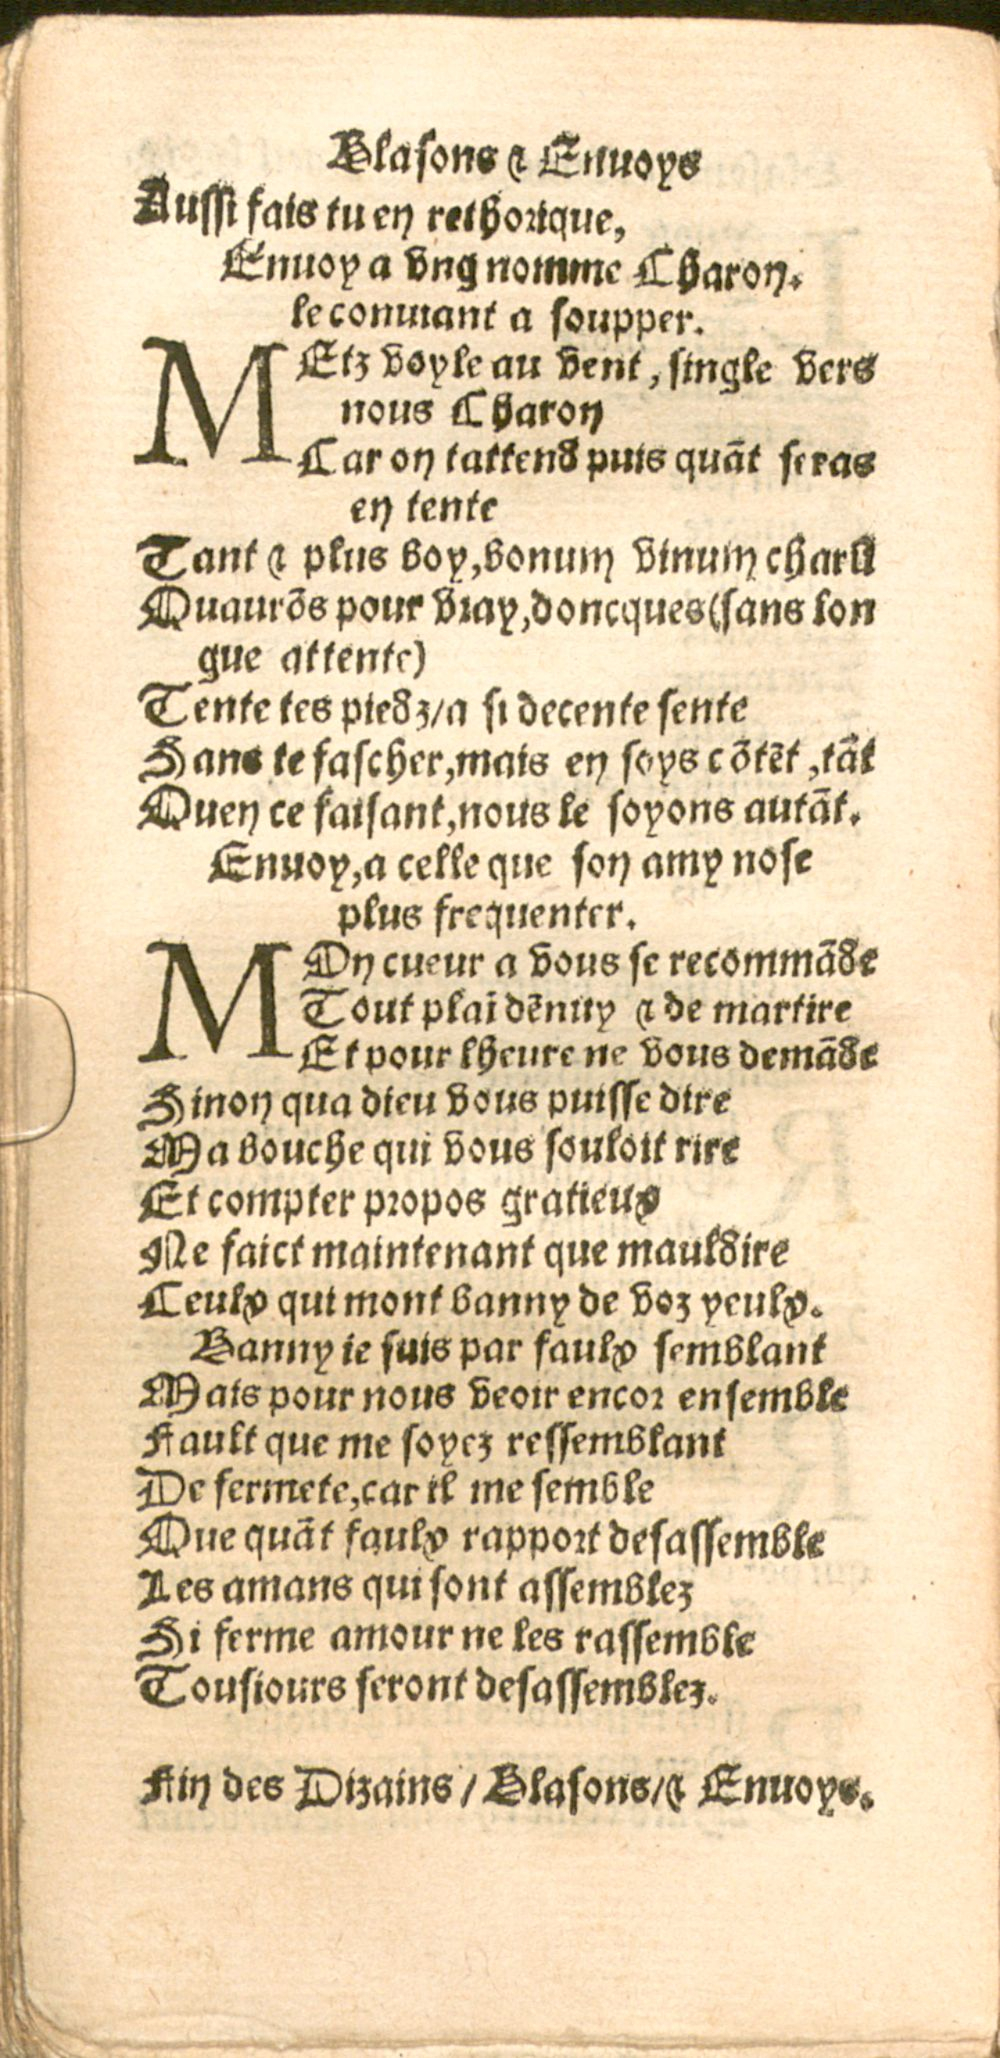 Blasons & Enuoys
Aussi fais tu en rethorique,
Enuoy a vng nomme Charon.
le conuiant a soupper.
MEtz voyle au vent, single vers
nous Charon
Car on tattend puis quãt seras
en tente
Tant & plus boy, bonum vinum
Quaurõs pour vray, doncques (sans lon
gue attente)
Tente tes piedz/a si decente sente
Sans te fascher, mais en soys cõtẽt, tãt
Quen ce faisant, nous le soyons autãt.
Enuoy, a celle que son amy nose
plus frequenter.
MOn cueur a vous se recommãde
Tout plaĩ dẽnuy & de martire
Et pour lheure ne vous demãde
Sinon qua dieu vous puisse dire
Ma bouche qui vous souloit rire
Et compter propos gratieux
Ne faict maintenant que mauldire
Ceulx qui mont banny de voz yeulx.
Banny ie suis par faulx semblant
Mais pour nous veoir encor ensemble
Fault que me soyez ressemblant
De fermete, car il me semble
Que quãt faulx rapport desassemble
Les amans qui sont assemblez
Si ferme amour ne les rassemble
Tousiours seront desassemblez.
Fin des Dizains / Blasons/& Enuoys.